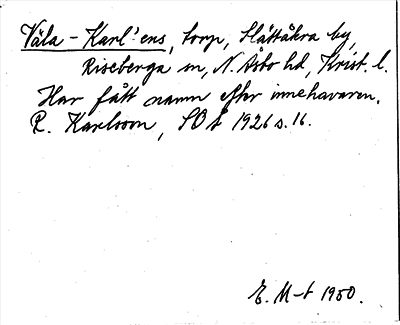 Väla - Karl'ens, torp, Slättåkra by,
Riseberga sn, N. Åsbo hd, Krist. l.
Har fått namn efter innehavaren.
R. Karlsson, SOÅ 1926 s. 16.
E. M-t 1950.